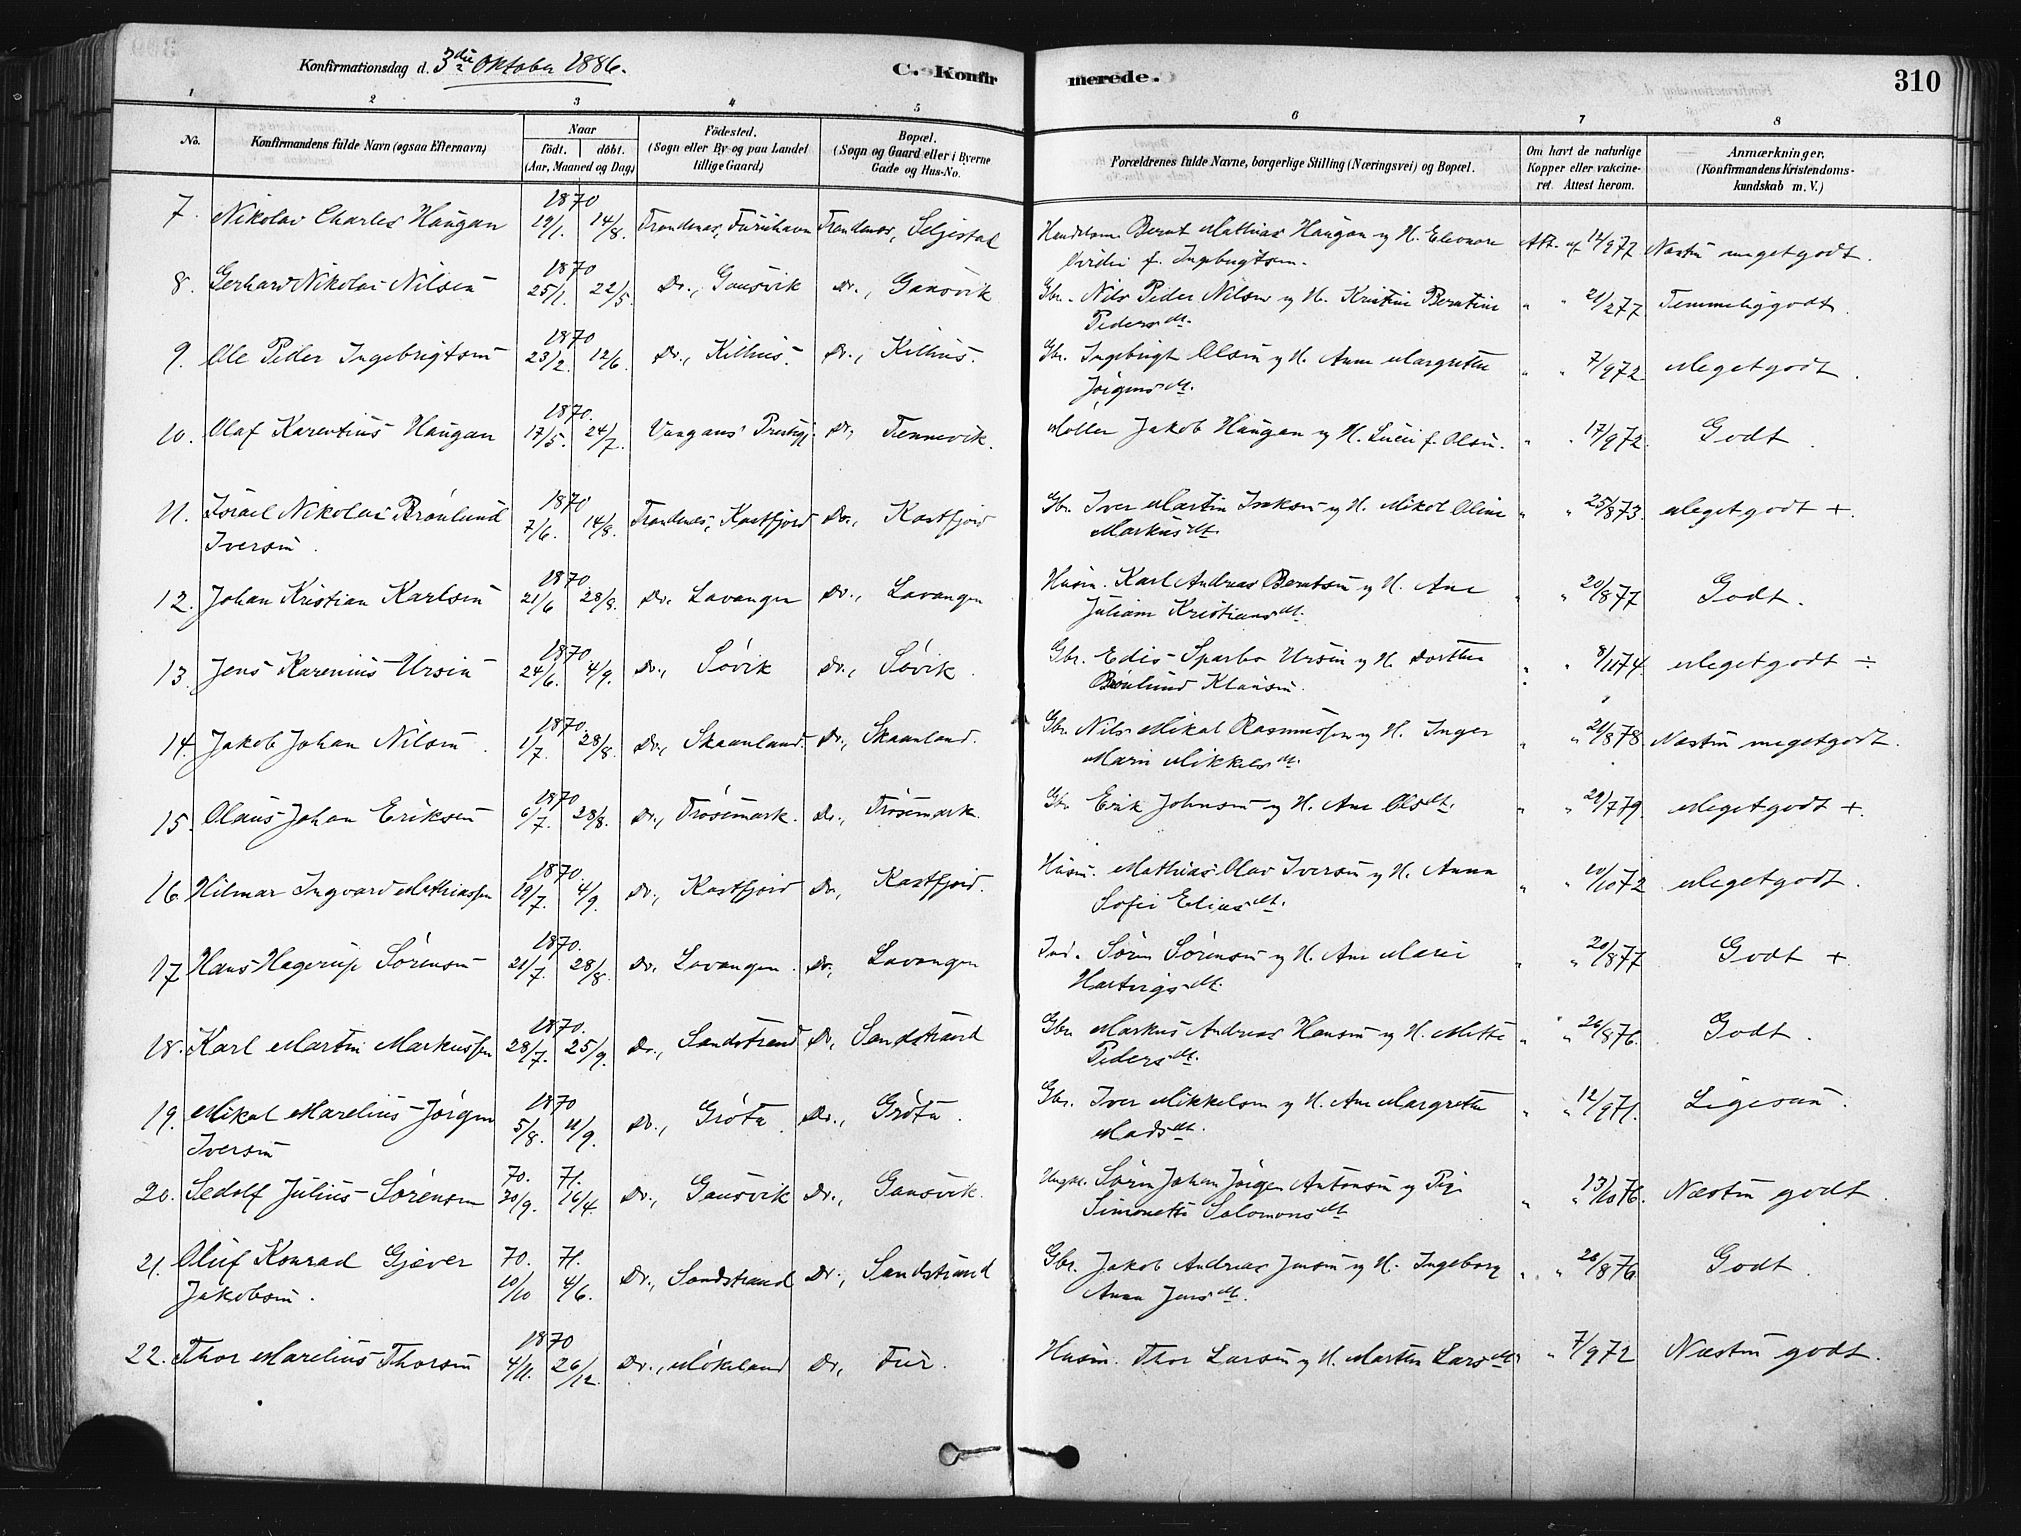 Konfirmationsdag d. 3die Oktober 1886.
C. Konfirmerede.
310
1 2 3 4 5 6 7 8
No. Konfirmandens fulde Navn (ogsaa Efternavn) Naar født. døbt. (Aar, Maaned og Dag) Fødested. (Sogn eller By og paa Landet tillige Gaard) Bopæl. (Sogn og Gaard eller i Byerne Gade og Hus-No. Forældrenes fulde Navne, borgerlige Stilling (Næringsvei) og Bopæl. Om havt de naturlige Kopper eller vakcineret. Attest herom. Anmærkninger. (Konfirmandens Kristendomskundskab m. V.)
7. Nikolai Charles Haugan 1870 19/1. 14/8. Trondenes, Furuhavn Trondenes, Seljestad Handelsm. Bernt Mathias Haugan og H. Eleonore
f. Ingebrigtsen. Att. af 12/9 72 Næsten megetgodt.
8. Gerhard Nikolai Nilsen 1870 25/1. 22/5. Do., Gausvik Do., Gausvik Gbr. Nils Peder Nilsen og H. Kristine Berntine
Pedersdt. " " 21/2 77 Temmeliggodt.
9. Ole Peder Ingebrigtsen 1870 23/2. 12/6. Do., Kilhus. Do., Kilhus. Gbr. Ingebrigt Olsen og H. Anne Margrethe
Jørgensdt. " " 7/9 72 Megetgodt.
10. Olaf Karentius Haugan 1870. 17/5. 24/7. Vaagans Prestegj. Do, Tennevik. Møller Jakob Haugan og H. Lucie f. Olsen. " " 17/9 72. Godt.
11. Israel Nikolai Brønlund 1870 7/6. 14/8. Trondenes, Kastfjord Do., Kastfjord Gbr. Iver Martin Isaksen og H. Mikol Oline " " 25/8 73. Megetgodt +.
Iversen. Markusdt.
12. Johan Kristian Karlsen 1870. 21/6. 28/8. Do., Lavangen Do., Lavangen Husm. Karl Andreas Berntsen og H. Ane
Juliane Kristiansdt. " " 20/8 77 Godt.
13. Jens Karenius Ursin 1870. 24/6. 4/9. Do., Søvik Do., Søvik. Gbr. Edis Sparbo Ursin og H. Dorthea
Brønlund Klausen. " " 8/11 74. Megetgodt ÷
14. Jakob Johan Nilsen. 1870. 1/7. 28/8. Do., Skaanland. Do., Skaanland. Gbr. Nils Mikal Rasmussen og H. Inger
Marie Mikkelsdt. " " 20/8 78. Næsten megetgodt.
15. Olaus Johan Eriksen 1870 6/7. 28/8. Do., Trøsemark. Do., Trøsemark. Gbr Erik Johnsen og H. Ane Olsdt. " " 29/7 79. Megetgodt +.
16. Hilmar Ingvard Mathiassen 1870 19/7. 4/9. Do., Kastfjord Do., Kastfjord. Husm. Mathias Olav Iversen og H. Anna
Sofie Eliasdt. " " 10/10 72 Megetgodt.
17 Hans Hagerup Sørensen 1870. 21/7. 28/8. Do. Lavangen. Do., Lavangen Ind. Søren Sørensen og H. Ane Marie
Hartvigsdt. " " 20/8 77 Godt +
18. Karl Martin Markussen 1870. 28/7. 25/9. Do., Sandstrand Do, Sandstrand Gbr. Markus Andreas Hansen og H. Mette
Pedersdt. " " 26/8 76. Godt.
19. Mikal Marelius Jørgen 1870 5/8. 11/9. Do., Grøta. Do., Grøta. Gbr. Iver Mikkelsen og H. Ane Margrethe
Iversen Madsdt. " " 12/9 71. Ligesaa.
20. Sedolf Julius Sørensen 70. 20/9. 71. 16/4. Do., Gausvik Do., Gausvik. Ungk. Søren Johan Jørgen Antonsen og Pige
Simonette Salomonsdt " " 13/10 76. Næsten godt.
21. Oluf Konrad Gjæver 70. 10/10 71. 4/6. Do., Sandstrand Do., Sandstrand Gbr. Jakob Andreas Jensen og H. Ingeborg
Jakobsen. Anna Jensdt. " " 26/8 76 Godt.
22. Thor Marelius Thorsen 1870 4/11. 26/12. Do., Møkeland Do, Fur. Husm. Thor Larsen og H. Marthe Larsdt. " 7/9 72 Næsten godt.